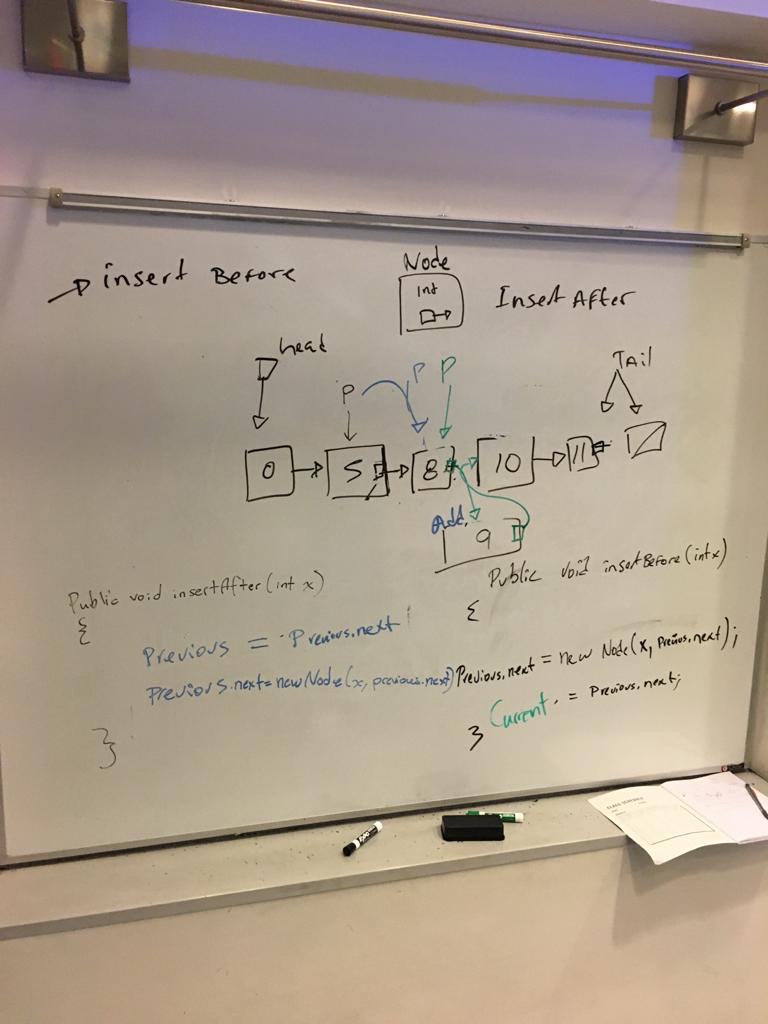 insert Before
Node
int
Insert After
head
Tail
P
P
P
0
5
8
10
11
Add
9
Public void insertAfter(int x)
{
Previous = Previous.next
Previous.next=newNode(x, previous.next)
}
Public void insertBefore(int x)
{
Previous.next = new Node(x, Previous.next);
Current = Previous.next;
}